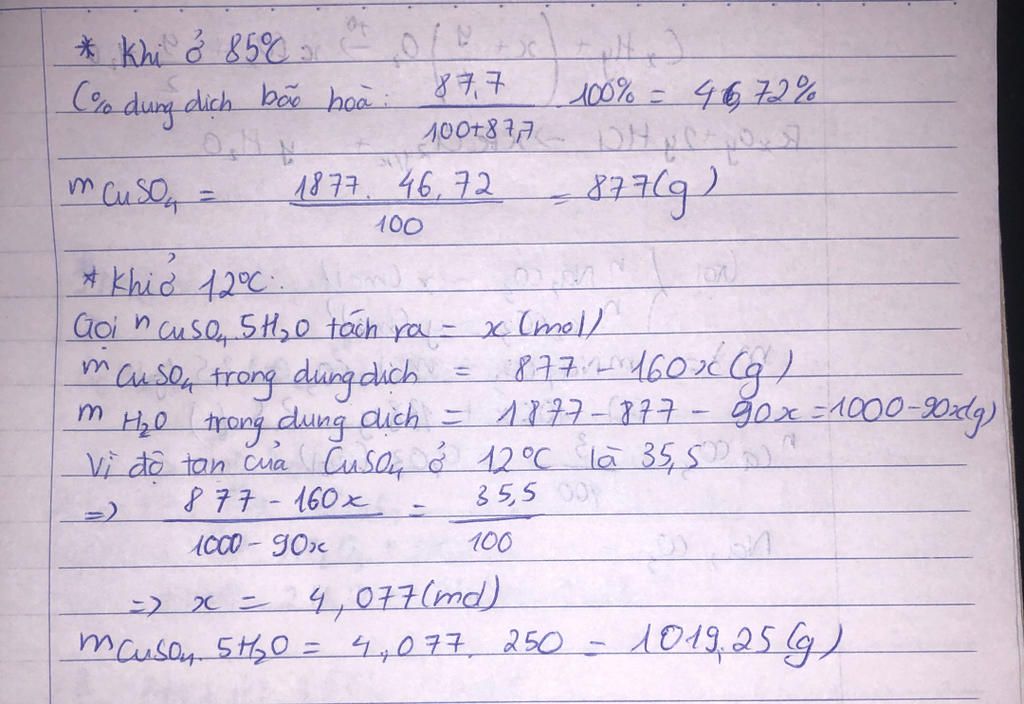 * Khi ở 85°C
C% dung dịch bão hoà: 87,7 / (100+87,7) . 100% = 46,72%
mCuSO₄ = (1877. 46,72) / 100 = 877(g)
* Khi ở 12°C:
Gọi nCuSO₄.5H₂O tách ra = x (mol)
mCuSO₄ trong dung dịch = 877 - 160x (g)
mH₂O trong dung dịch = 1877 - 877 - 90x = 1000 - 90x(g)
Vì độ tan của CuSO₄ ở 12°C là 35,5
=> (877 - 160x) / (1000 - 90x) = 35,5 / 100
=> x = 4,077(mol)
mCuSO₄.5H₂O = 4,077. 250 = 1019,25 (g)